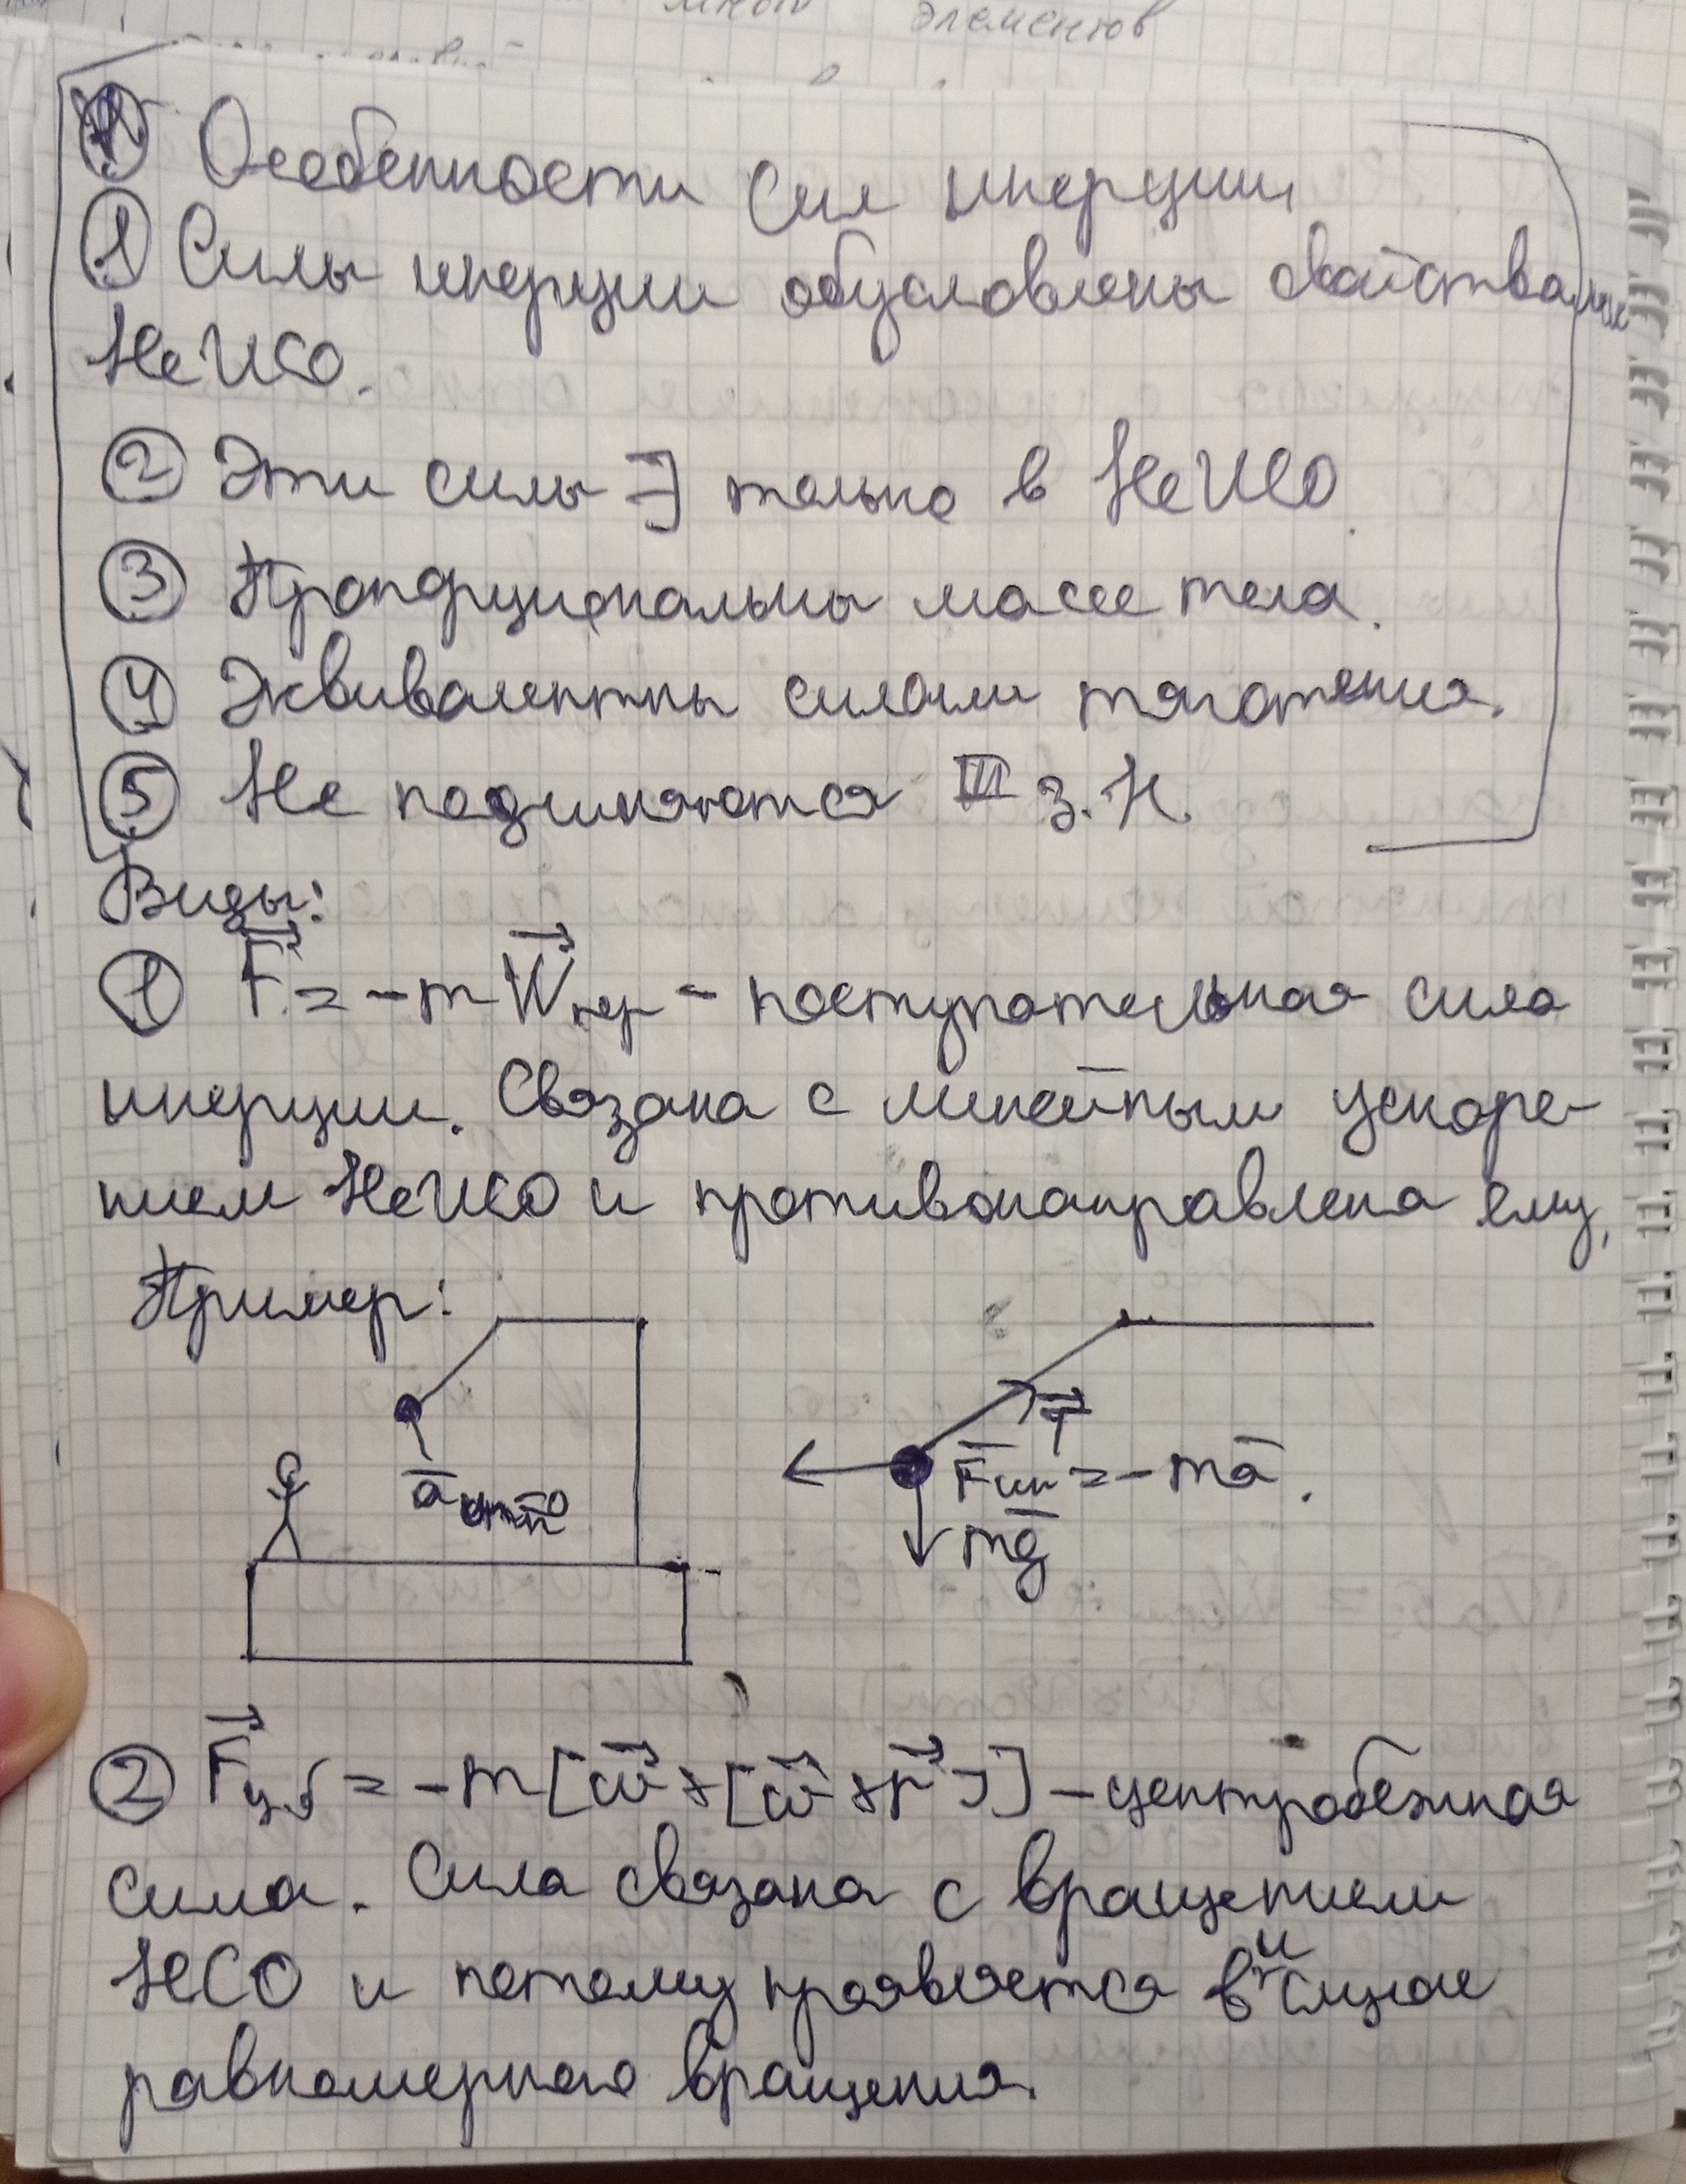 элементов
Особенности сил инерции
① Силы инерции обусловлены свойствами
НеИСО.
② Эти силы ∃ только в НеИСО.
③ Пропорциональны массе тела.
④ Эквивалентны силами тяготения.
⑤ Не подчиняются III з. Н.
Виды:
① F⃗ = -m W⃗пер - поступательная сила
инерции. Связана с линейным ускоре-
нием НеИСО и противонаправлена ему,
Пример:
T⃗
a̅
F̅ин = -ma̅.
mg̅
② F⃗цб = -m[ω⃗ × [ω⃗ × r⃗]] - центробежная
сила. Сила связана с вращением
НСО и потому проявляется и в случае
равномерного вращения.